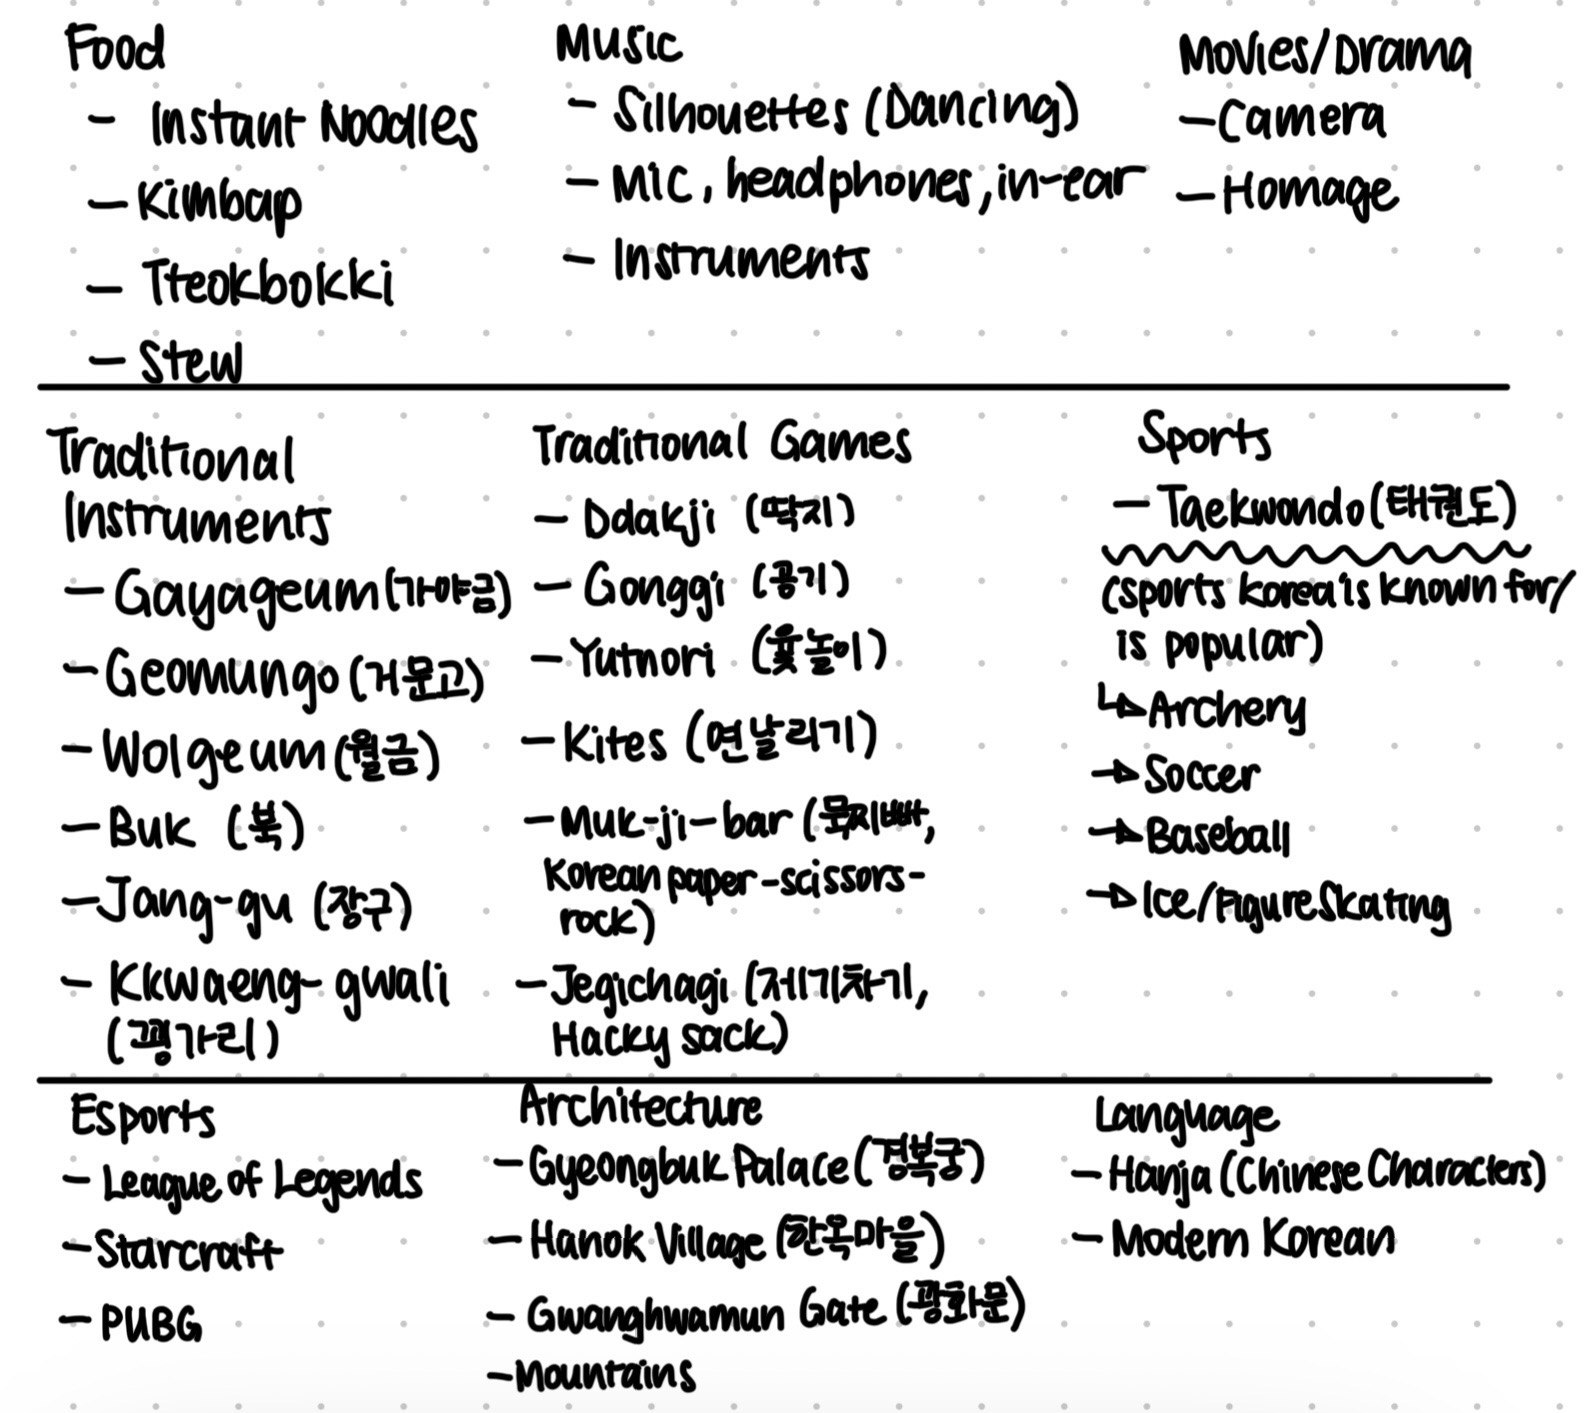 Food
- Instant Noodles
- Kimbap
- Tteokbokki
- Stew
Music
- Silhouettes (Dancing)
- Mic, headphones, in-ear
- Instruments
Movies/Drama
- Camera
- Homage
Traditional
Instruments
- Gayageum (가야금)
- Geomungo (거문고)
- Wolgeum (월금)
- Buk (북)
- Jang-gu (장구)
- Kkwaeng-gwali
(꽹가리)
Traditional Games
- Ddakji (딱지)
- Gonggi (공기)
- Yutnori (윷놀이)
- Kites (연날리기)
- Muk-ji-bar (묵찌빠,
Korean paper-scissors-
rock)
- Jegichagi (제기차기,
Hacky sack)
Sports
- Taekwondo (태권도)
(sports korea is known for/
is popular)
↳ Archery
→ Soccer
→ Baseball
→ Ice/Figure Skating
Esports
- League of Legends
- Starcraft
- PUBG
Architecture
- Gyeongbuk Palace (경복궁)
- Hanok Village (한옥마을)
- Gwanghwamun Gate (광화문)
- Mountains
Language
- Hanja (Chinese Characters)
- Modern Korean